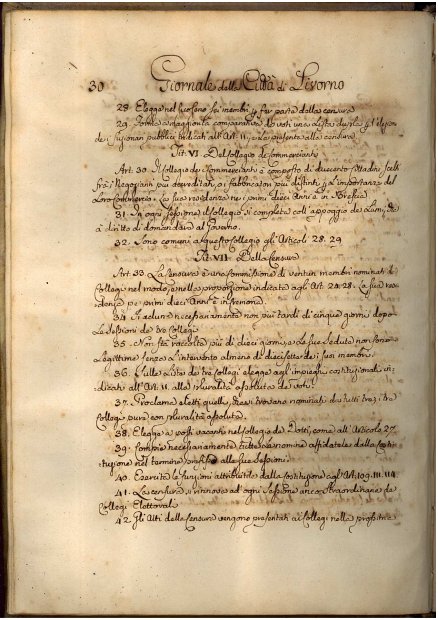 30 Giornale della Città di Livorno
28. Elegge nel suo seno sei membri per far parte della censura
29. Forma a maggiorità comparativa de voti una Lista dupla per l'elezione
de i Funzionarj pubblici indicati all'Art. 11, e La presenta alla censura
Tit. VI Del Collegio de Commercianti
Art. 30. Il Collegio de Commercianti è composto di duecento cittadini scelti
frà i Negozianti più accreditati, e i fabbricatori più distinti per L'importanza del
Loro commercio. La sua residenza ne i primi dieci anni è in Brescia
31. In ogni sessione il Collegio si completa coll'appoggio de Lumi, che
à diritto di domandare al Governo.
32. Sono comuni a questo Collegio gli Articoli 28. 29
Tit. VII Della Censura
Art. 33 La Censura è una commissione di ventun membri nominati da
Collegi nel modo, e nella proporzione indicata agli Art. 24. 28. La sua resi-
denza pe primi dieci Anni è in Cremona.
34. Si aduna necessariamente non più tardi di cinque giorni dopo
Le sessioni de trè Collegi
35. Non stà raccolta più di dieci giorni, e Le sue sedute non sono
Legittime senza L'intervento almeno di diciasette de i suoi membri.
36. Sulle Liste dei trè collegi elegge agli impieghi costituzionali in-
dicati all'Art. 11. alla pluralità assoluta de voti.
37. Proclama eletti quelli, che si trovano nominati da tutti tre i tre
Collegi pure con pluralità assoluta.
38. Elegge a posti vacanti nel collegio de Dotti, come all'Articolo 27.
39. Compie necessariamente tutte le nomine affidatele dalla Costi-
tuzione nel termine prefisso alle sue sessioni.
40. Esercita le funzioni attribuitele dalla costituzione agl'Art. 109. 111. 114.
41. La censura si rinnova ad ogni sessione anco straordinaria de
Collegi Elettorali
42. Gli Atti della censura vengono presentati ai Collegi nella prossima